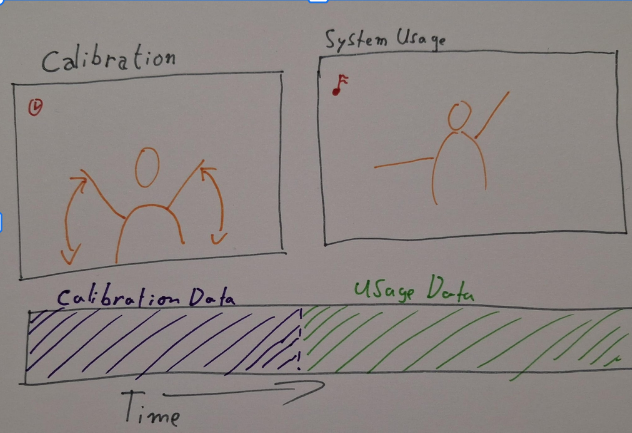 Calibration
System Usage
Calibration Data
Usage Data
Time